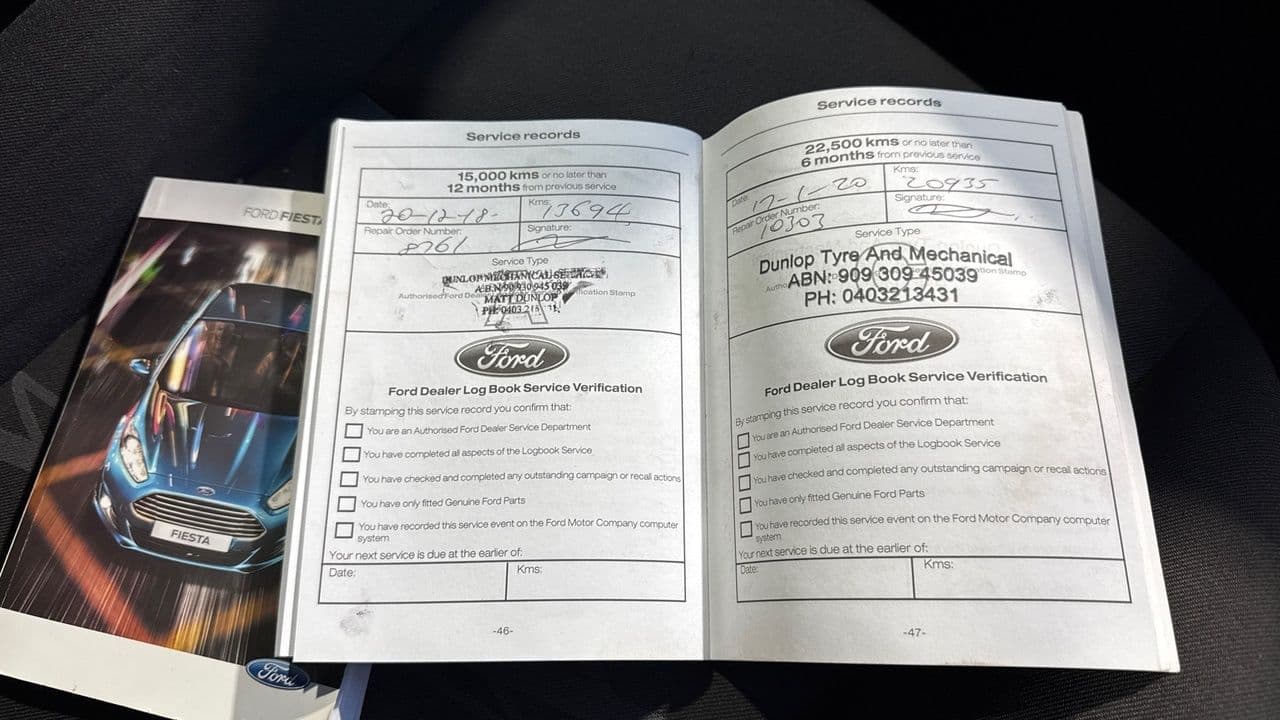 FORD FIESTA
FIESTA
Ford
Service records
15,000 kms or no later than
12 months from previous service
Date: 20-12-18-
Kms: 13694
Repair Order Number: 8761
Signature:
Service Type
DUNLOP MECHANICAL
A.B.N 90 930 945 039
Authorised Ford Dealer
MATT DUNLOP
Verification Stamp
PH: 0403 213
Ford
Ford Dealer Log Book Service Verification
By stamping this service record you confirm that:
You are an Authorised Ford Dealer Service Department
You have completed all aspects of the Logbook Service
You have checked and completed any outstanding campaign or recall actions
You have only fitted Genuine Ford Parts
You have recorded this service event on the Ford Motor Company computer
system
Your next service is due at the earlier of:
Date:
Kms:
-46-
Service records
22,500 kms or no later than
6 months from previous service
Date: 17-1-20
Kms: 20935
Repair Order Number: 10303
Signature:
Service Type
Dunlop Tyre And Mechanical
ABN: 909 309 45039
PH: 0403213431
Ford
Ford Dealer Log Book Service Verification
By stamping this service record you confirm that:
You are an Authorised Ford Dealer Service Department
You have completed all aspects of the Logbook Service
You have checked and completed any outstanding campaign or recall actions
You have only fitted Genuine Ford Parts
You have recorded this service event on the Ford Motor Company computer
system
Your next service is due at the earlier of:
Date:
Kms:
-47-